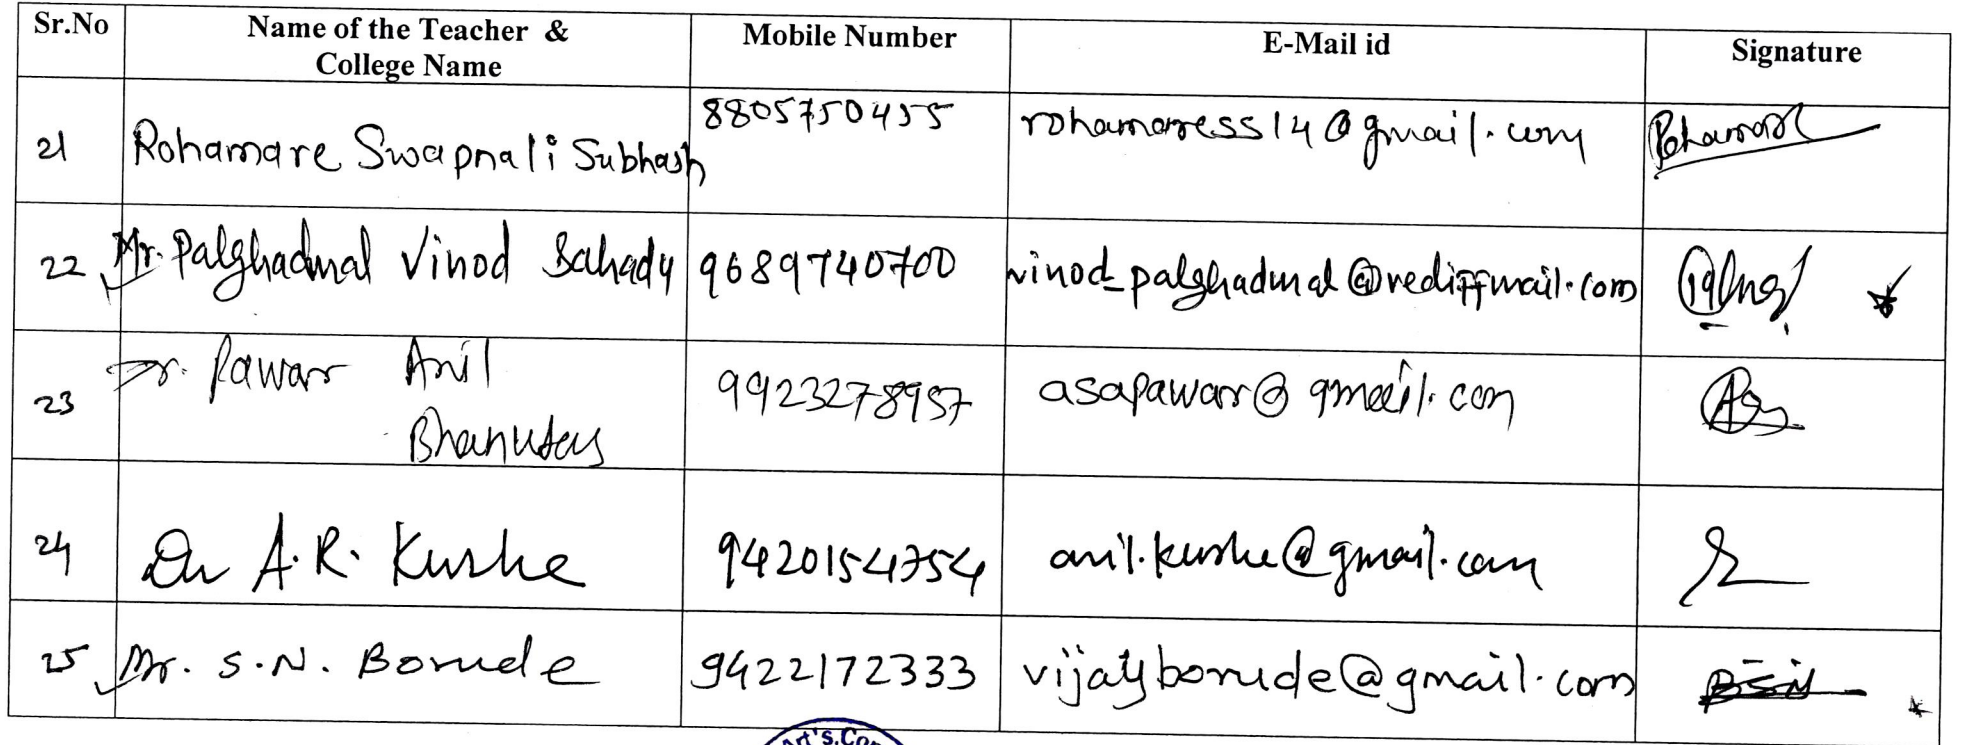 Sr.No Name of the Teacher & College Name Mobile Number E-Mail id Signature
21 Rohamare Swapnali Subhash 8805750455 rohamaress14@gmail.com
22 Mr. Palghadmal Vinod Bahadu 9689740700 vinod_palghadmal@rediffmail.com
23 Dr. Pawar Anil 9923278957 asapawar@gmail.com
Bhanudas
24 Dr A.R. Kushe 9420154754 anil.kushe@gmail.com
25 Mr. S.N. Borude 9422172333 vijayborude@gmail.com BSN
Art's, Com